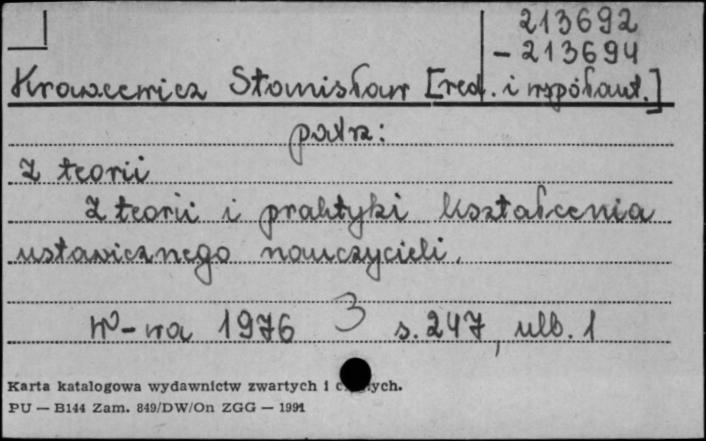 213692
- 213694
Krawcewicz Stanisław [red. i współaut.]
patrz:
Z teorii
Z teorii i praktyki kształcenia
ustawicznego nauczycieli.
W-wa 1976 3 s. 247, ulb. 1
Karta katalogowa wydawnictw zwartych i
PU — B144 Zam. 849/DW/On ZGG — 1991